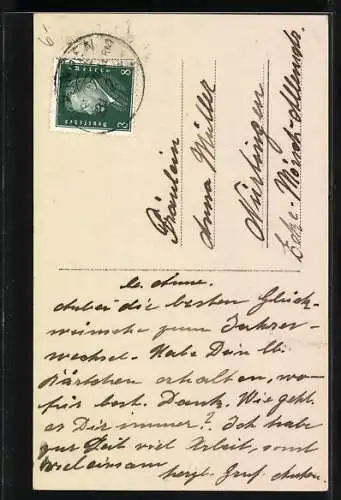 6.-
Deutsches Reich
8 8
Fräulein
Anna Müller
Nürtingen
Ecke-Mörike-Allensts.
Lb. Anna.
Anbei die besten Glück-
wünsche zum Jahres-
wechsel. Habe Dein lb.
Kärtchen erhalten, wo-
für best. Dank. Wie geht
es Dir immer? Ich habe
zur Zeit viel Arbeit, sonst
viel einsam
herzl. Gruß Anton.